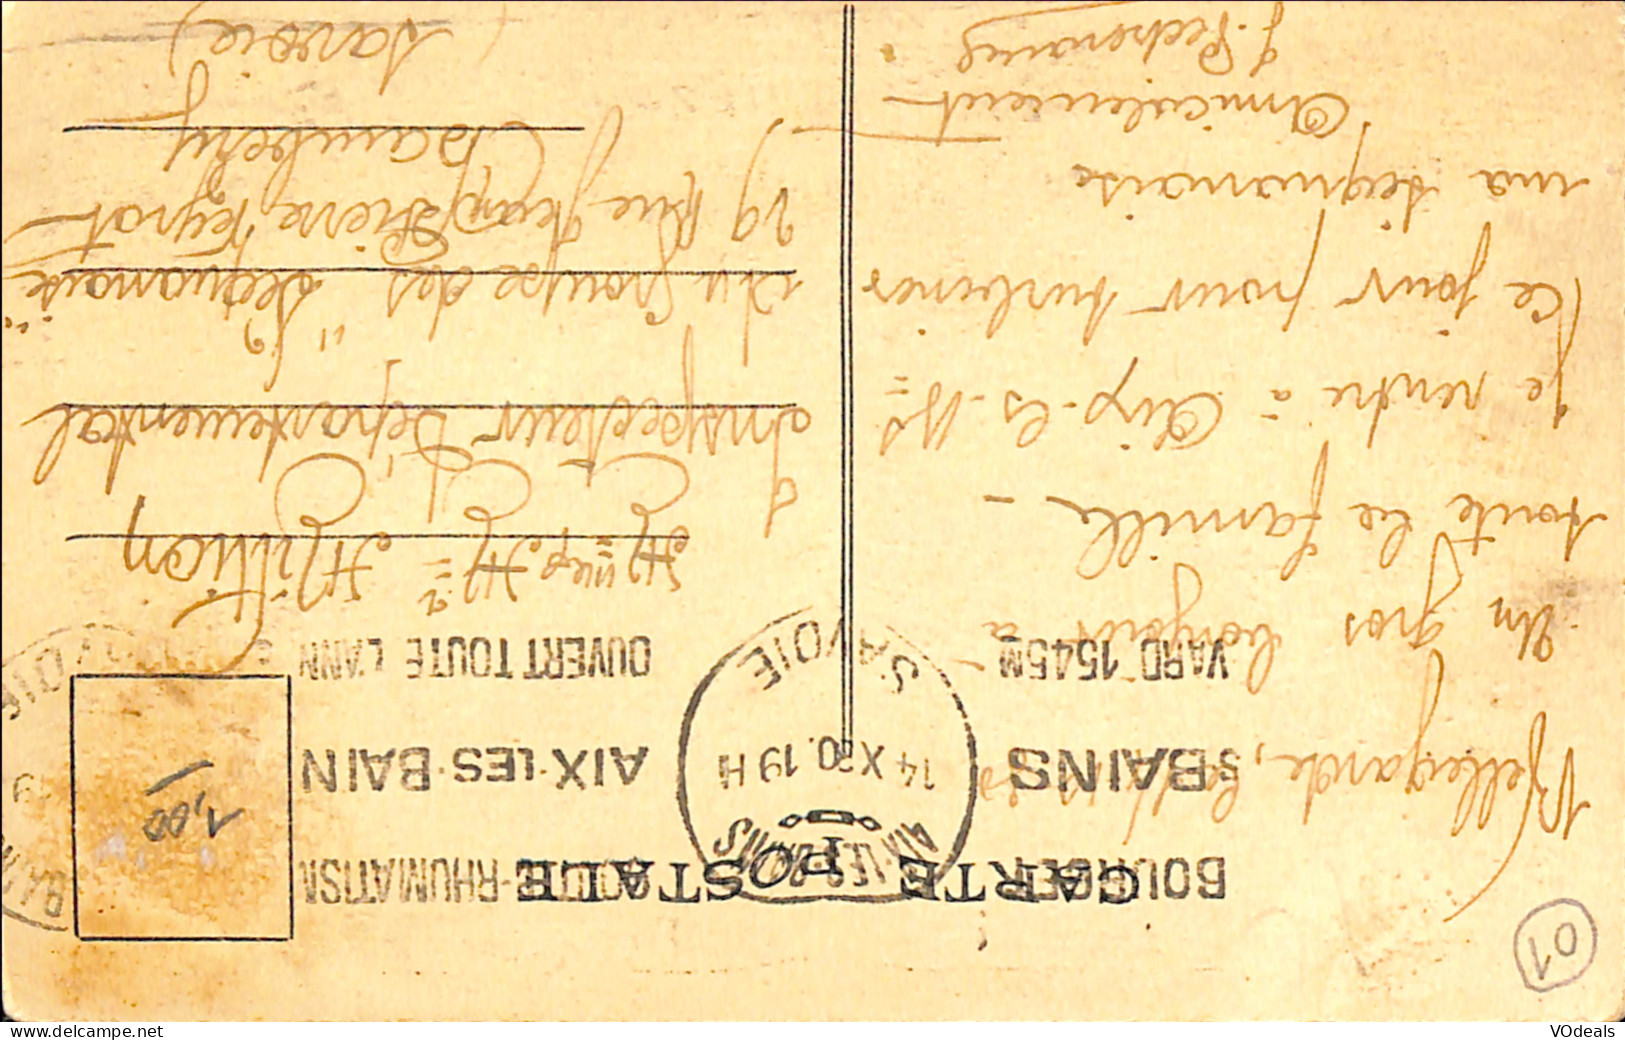 CARTE POSTALE
01
Bellegarde, le
Un gros bonjour à
toute la famille -
Je rentre à Aix-les-Bs
ce jour pour turbiner
ma séquanaise
Amicalement
BOU
BAINS
VARD 1545M
AIX-LES-BAINS
14 X 30. 19 H
SAVOIE
GOUTTE-RHUMATISM
AIX-LES-BAIN
OUVERT TOUTE L'ANN
1,00
BAIN
19
VOIE
Mr et Mme Million
Inspecteur Départemental
du Groupe des "Séquanaise"
29 Rue Jean Pierre Veyrat
Chambéry
Savoie)
VOdeals